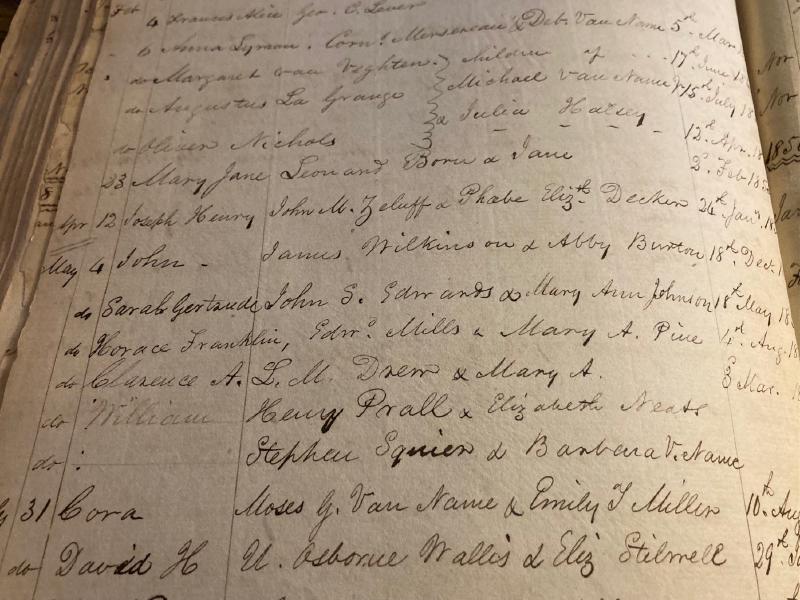 Feb 4 Frances Alice Geo. C. Lever
6 Anna Lyman. Corns Mersereau & Deb. Van Name 5th Mar.
do Margaret van Veghten. Children of 17th June 18
do Augustus La Grange Michael Van Name & 15th July 18
do Oliver Nichols & Julia Halsey 12th Apr. 18
23 Mary Jane Leonard Born & Jane 2d Feb 18
Apr 12 Joseph Henry John M. Zeluff & Phebe Elizth Decker 24th Jany. 18
May 4 John James Wilkinson & Abby Burton 18th Dec.
do Sarah Gertrude John S. Edwards & Mary Ann Johnson 18th May 18
do Horace Franklin, Edwd Mills & Mary A. Pine Aug. 18
do Clarence A. L. M. Drew & Mary A. 3 Mar. 18
do William Henry Prall & Elizabeth Neats
do Stephen Squier & Barbera V. Name
31 Cora Moses G. Van Name & Emily T Miller 10th Aug
do David H U. Osborne Wallis & Eliz Stilwell 29th